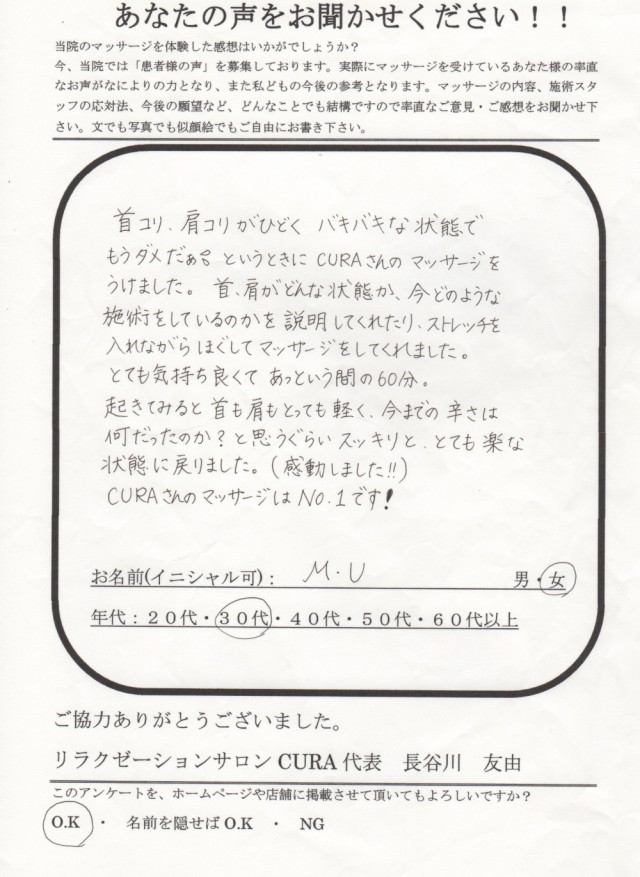 あなたの声をお聞かせください！！
当院のマッサージを体験した感想はいかがでしょうか？
今、当院では「患者様の声」を募集しております。実際にマッサージを受けているあなた様の率直
なお声がなによりの力となり、また私どもの今後の参考となります。マッサージの内容、施術スタ
ッフの応対法、今後の願望など、どんなことでも結構ですので率直なご意見・ご感想をお聞かせ下
さい。文でも写真でも似顔絵でもご自由にお書き下さい。
首コリ、肩コリがひどく バキバキな状態で
もうダメだぁ。というときに CURAさんの マッサージを
うけました。 首、肩がどんな状態か、今どのような
施術をしているのかを 説明してくれたり、ストレッチを
入れながら ほぐしてマッサージをしてくれました。
とても気持ち良くて あっという間の60分。
起きてみると 首も肩もとっても軽く、今までの 辛さは
何だったのか？と思うぐらい スッキリと、とても楽な
状態に戻りました。(感動しました!!)
CURAさんのマッサージは NO.1です！
お名前(イニシャル可)： M.U 男・女
年代：２０代・３０代・４０代・５０代・６０代以上
ご協力ありがとうございました。
リラクゼーションサロン CURA 代表 長谷川 友由
このアンケートを、ホームページや店舗に掲載させて頂いてもよろしいですか？
O.K ・ 名前を隠せば O.K ・ NG